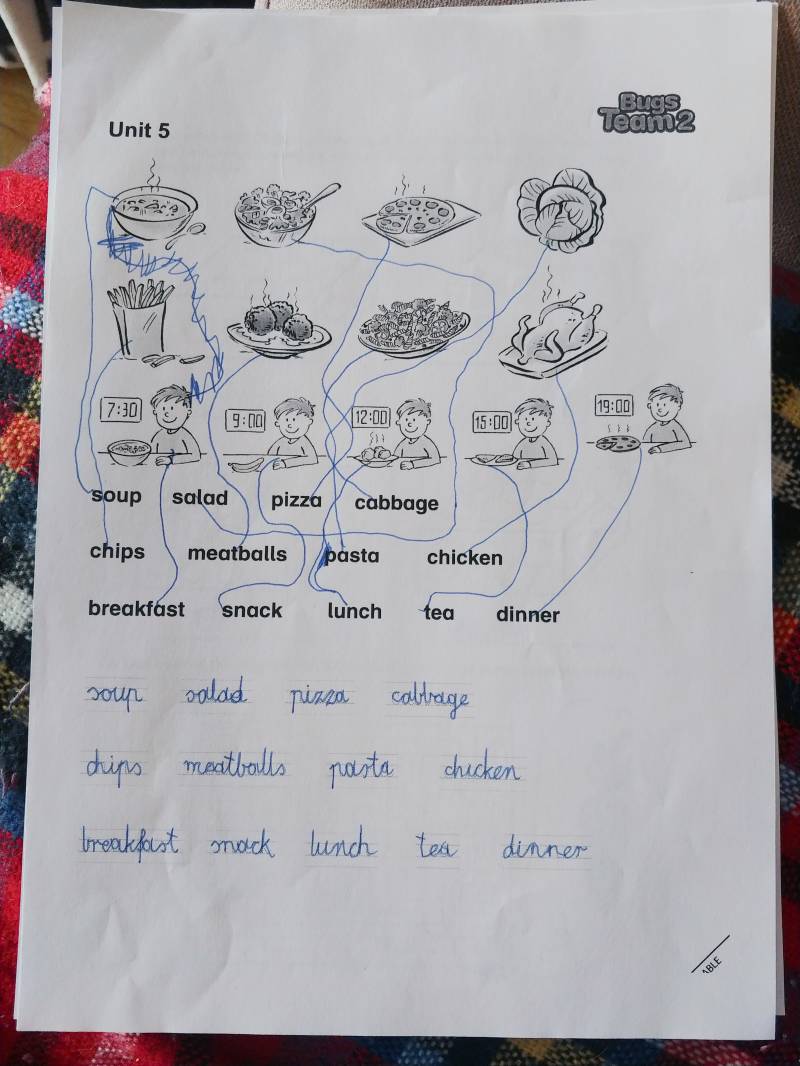 Unit 5
Bugs
Team 2
7:30
9:00
12:00
15:00
19:00
soup salad pizza cabbage
chips meatballs pasta chicken
breakfast snack lunch tea dinner
soup salad pizza cabbage
chips meatballs pasta chicken
breakfast snack lunch tea dinner
ABLE